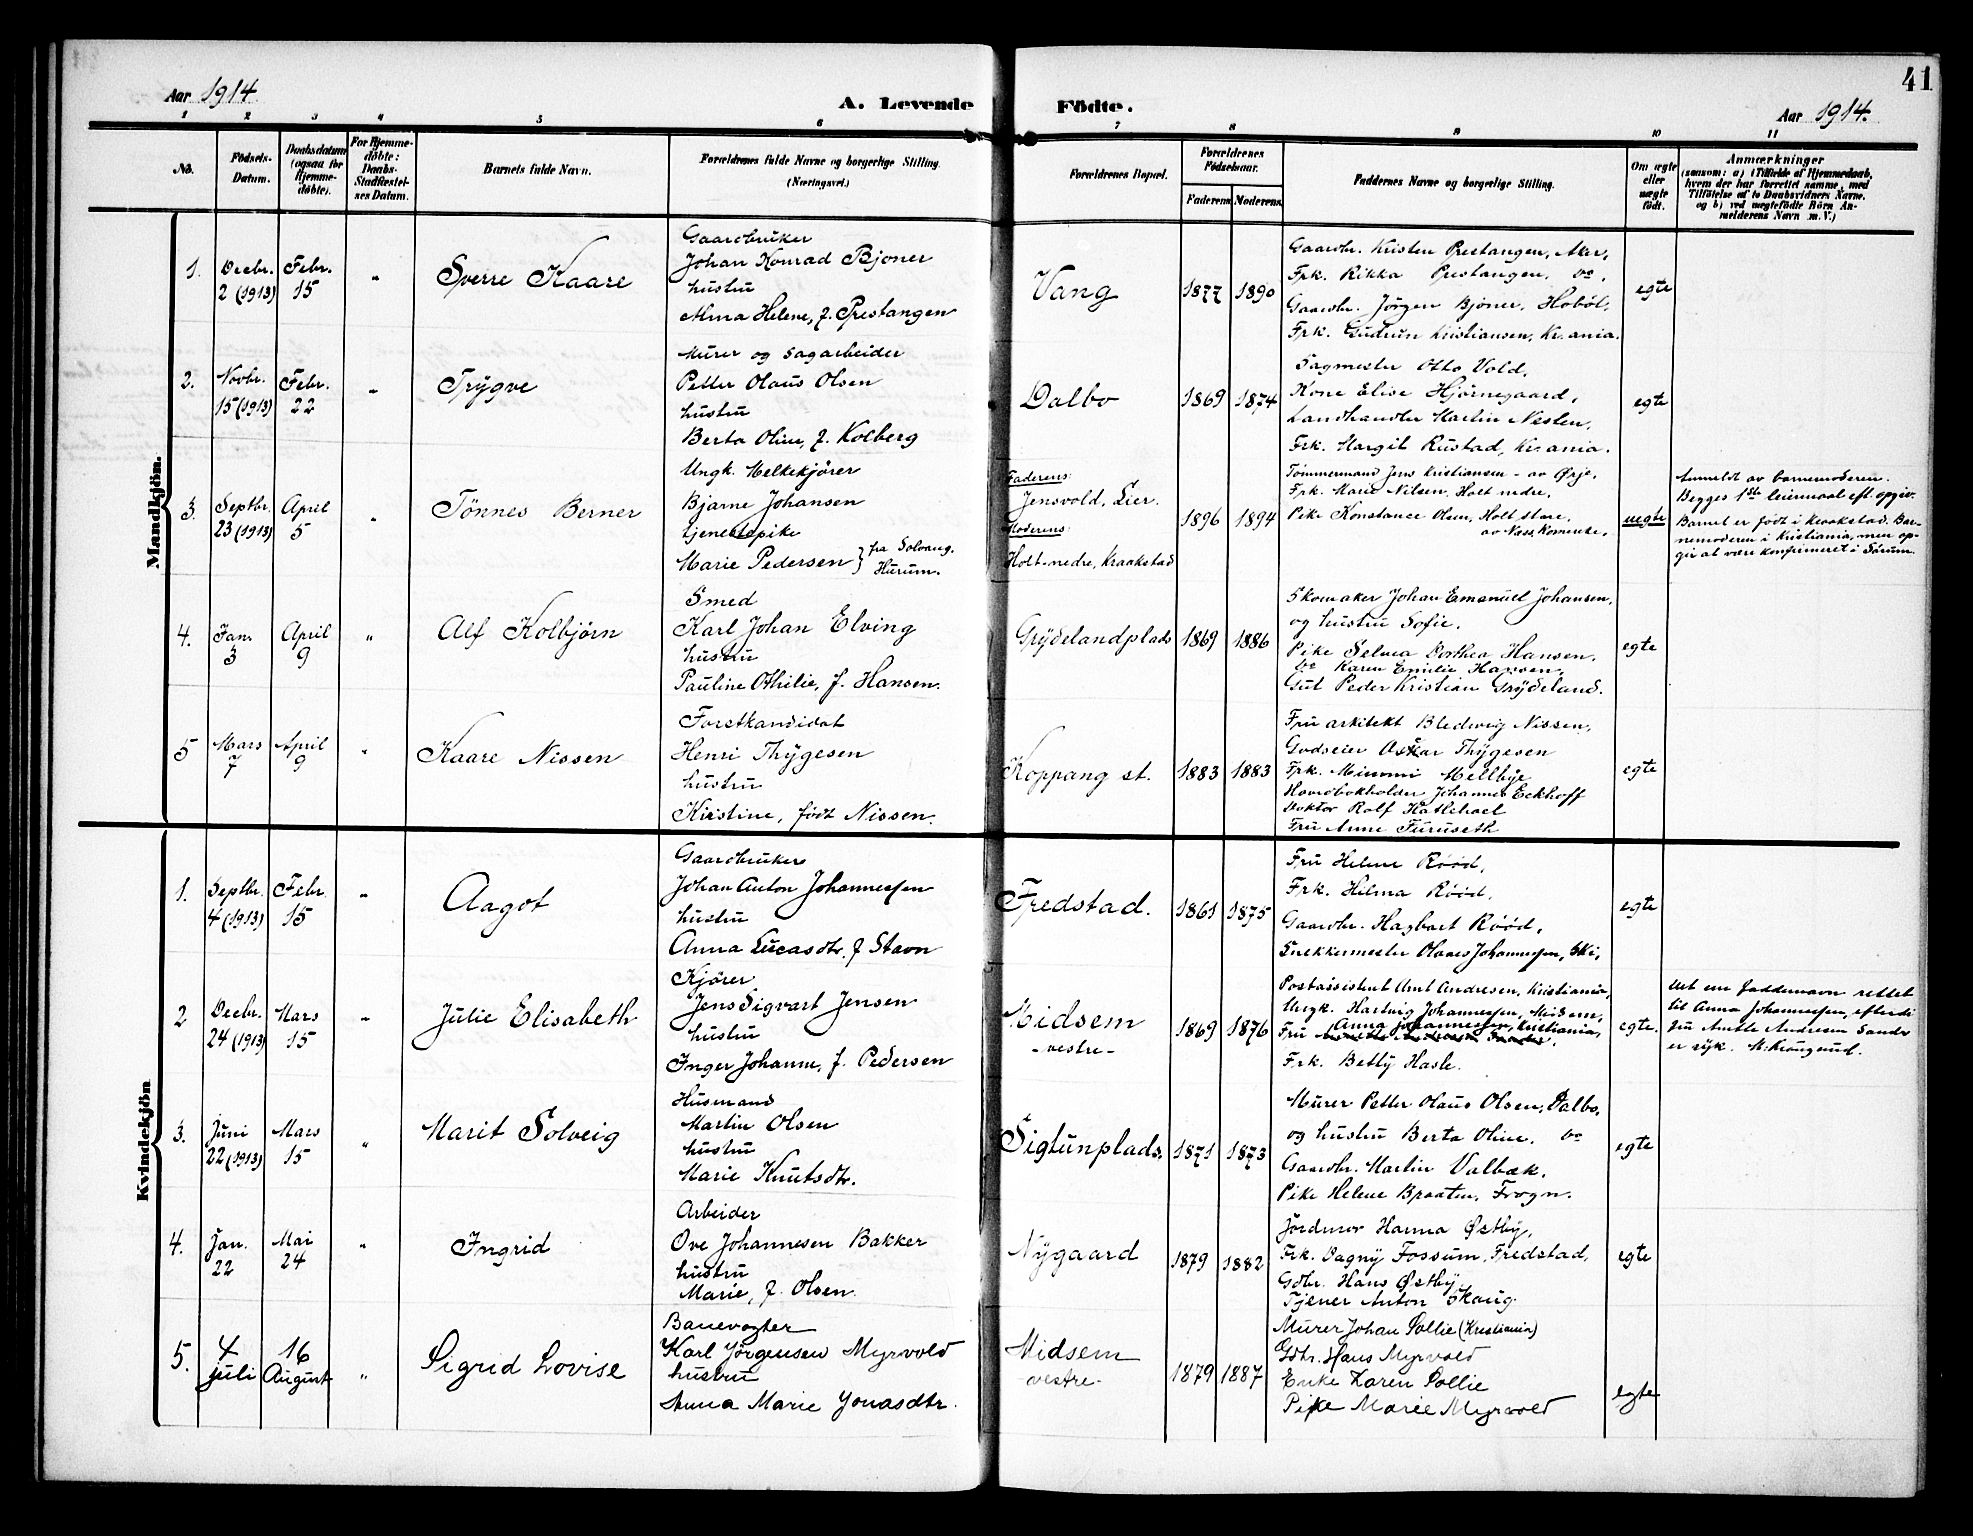 41
Aar 1914
A. Levende Födte.
Aar 1914.
1 2 3 4 5 6 7 8 9 10 11
No.
Födsels-Datum.
Daabsdatum (ogsaa for Hjemme-döbte).
For Hjemme-döbte: Daabs-Stadfæstel-ses Datum.
Barnets fulde Navn.
Forældrenes fulde Navne og borgerlige Stilling.
(Næringsvei.)
Forældrenes Bopæl.
Forældrenes Födselsaar.
Faderens Moderens
Faddernes Navne og borgerlige Stilling.
Om ægte eller uægte födt.
Anmærkninger
(saasom: a) i Tilfælde af Hjemmedaab,
hvem der har forrettet samme, med
Tilföielse af to Daabsvidners Navne,
og b) ved uægtefödte Börn An-
melderens Navn m. V.)
Mandkjön.
1.
Decbr.
2 (1913)
Febr.
15
"
Sverre Kaare
Gaardbruker
Johan Konrad Bjoner
hustru
Alma Helene, f. Prestangen
Vang
1877 1890
Gaardbr. Kristen Prestangen, Aker,
Frk. Rikka Prestangen, do,
Gaardbr. Jörgen Bjoner, Haböl,
Frk. Gudrun Kristiansen, Kr.ania.
egte
2.
Novbr.
15 (1913)
Febr.
22
"
Trygve
Murer og sagarbeider
Petter Olaus Olsen
hustru
Berta Oline, f. Kolberg
Dalbo
1869 1874
Sagmester Otto Vold,
Kone Elise Hjörnegaard,
Landhandler Martin Nesten,
Frk. Margit Rustad, Kr.ania.
egte
3.
Septbr.
23 (1913)
April
5
"
Tönnes Berner
Ungk. Melkekjörer
Bjarne Johansen
tjenestepike
Marie Pedersen } fra Solvang, Hurum.
Faderens:
Jensvold, Lier.
Moderens:
Holt nedre, Kraakstad
1896 1894
Tömmermand Jens Kristiansen - av Örje,
Frk. Marie Nilsen, Holt nedre,
Pike Konstance Olsen, Holt store,
av Næs, Romerike,
uegte
Anmeldt av barnemoderen.
Begges 1ste leiermaal eft. opgiv.
Barnet er født i Kraakstad. Bar-
nemoderen i Kristiania, men op-
gir at være konfirmeret i Sörum.
4.
Jan.
3
April
9
"
Alf Kolbjörn
Smed
Karl Johan Elving
hustru
Pauline Othilie, f. Hansen.
Grydelandplads
1869 1886
Skomaker Johan Emanuel Johansen,
og hustru Sofie.
Pike Selma Dorthea Hansen,
do Karen Emilie Hansen,
Gut Peder Kristian Grydeland.
egte
5
Mars
7
April
9
"
Kaare Nissen
Forstkandidat
Henri Thygesen
hustru
Kirstine, født Nissen.
Koppang st.
1883 1883
Fru arkitekt Bledwig Nissen,
Godseier Oskar Thygesen
Frk. Mimmi Mellbye
Hovedbokholder Johannes Eckhoff
Doktor Rolf Hatlehoel
Fru Anne Furuseth
egte
Kvindekjön
1.
Septbr.
4 (1913)
Febr.
15
"
Aagot
Gaardbruker
Johan Anton Johannessen
hustru
Anna Lucasdtr. f Stavn
Fredstad.
1861 1875
Fru Helene Rööd,
Frk. Hilma Rööd,
Gaardbr. Hagbart Rööd,
Snekkermester Olaves Johannessen, Ski,
egte
2
Decbr.
24 (1913)
Mars
15
"
Julie Elisabeth
Kjörer
Jens Sigvart Jensen
hustru
Inger Johanne, f. Pedersen
Midsem
- vestre -
1869 1876
Postassistent Amt Andresen, Kristiania,
Ungk. Hartvig Johannessen, Midsem,
Fru Anna Johannessen, Kristiania,
Frk. Betty Hasle.
egte.
Det ene faddernavn rettet
til Anna Johannessen, efterdi
fru Anette Andresen Sander
er syk. M. Krougsrud.
3.
Juni
22 (1913)
Mars
15
"
Marit Solveig
Husmand
Martin Olsen
hustru
Marie Knutsdtr.
Sigtunplads,
1871 1873
Murer Petter Olaus Olsen, Dalbo,
og hustru Berta Oline, do
Gaardbr. Martin Valbæk,
Pike Helene Braaten, Frogn.
egte
4.
Jan.
22
Mai
24
"
Ingrid
Arbeider
Ove Johannesen Bakker
hustru
Marie, f. Olsen.
Nygaard
1879 1882
Jordmor Hanna Østby,
Frk. Dagny Fossum, Fredstad,
Gdbr. Hans Østby,
Tjener Anton Skaug.
egte
5.
4
juli
16
August
"
Sigrid Lovise
Banevogter
Karl Jørgensen Myrvold
hustru
Anna Marie Jonasdtr.
Midsem
- vestre -
1879 1887
Murer Johan Sollie (Kristiania)
Gdbr. Hans Myrvold
Enke Karen Sollie
Pike Marie Myrvold
egte